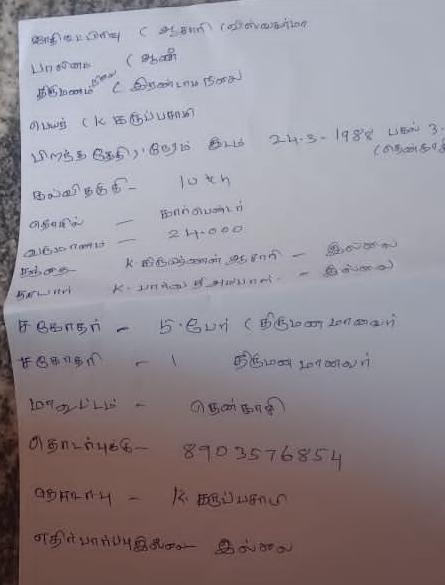 ஜாதி உட்பிரிவு ( ஆசாரி (விஸ்வகர்மா
பாலினம் ( ஆண்
திருமணம் நிலை ( இரண்டாம் நிலை
பெயர் ( K கருப்பசாமி
பிறந்த தேதி, நேரம் இடம் 24-3-1988 பகல் 3.
(தென்காசி
கல்வி தகுதி - 10th
தொழில் - கார்பெண்டர்
வருமானம் - 24-000
தந்தை K. கிருஷ்ணன் ஆசாரி - இல்லை
தாயார் K. பார்வதி அம்மாள் - இல்லை
சகோதர் - 5. பேர் (திருமணமானவர்
சகோதரி - 1 திருமணமானவர்
மாவட்டம் - தென்காசி
தொடர்புக்கு - 8903576854
தொடர்பு - K கருப்பசாமி
எதிர்பார்ப்பு இல்லை இல்லை